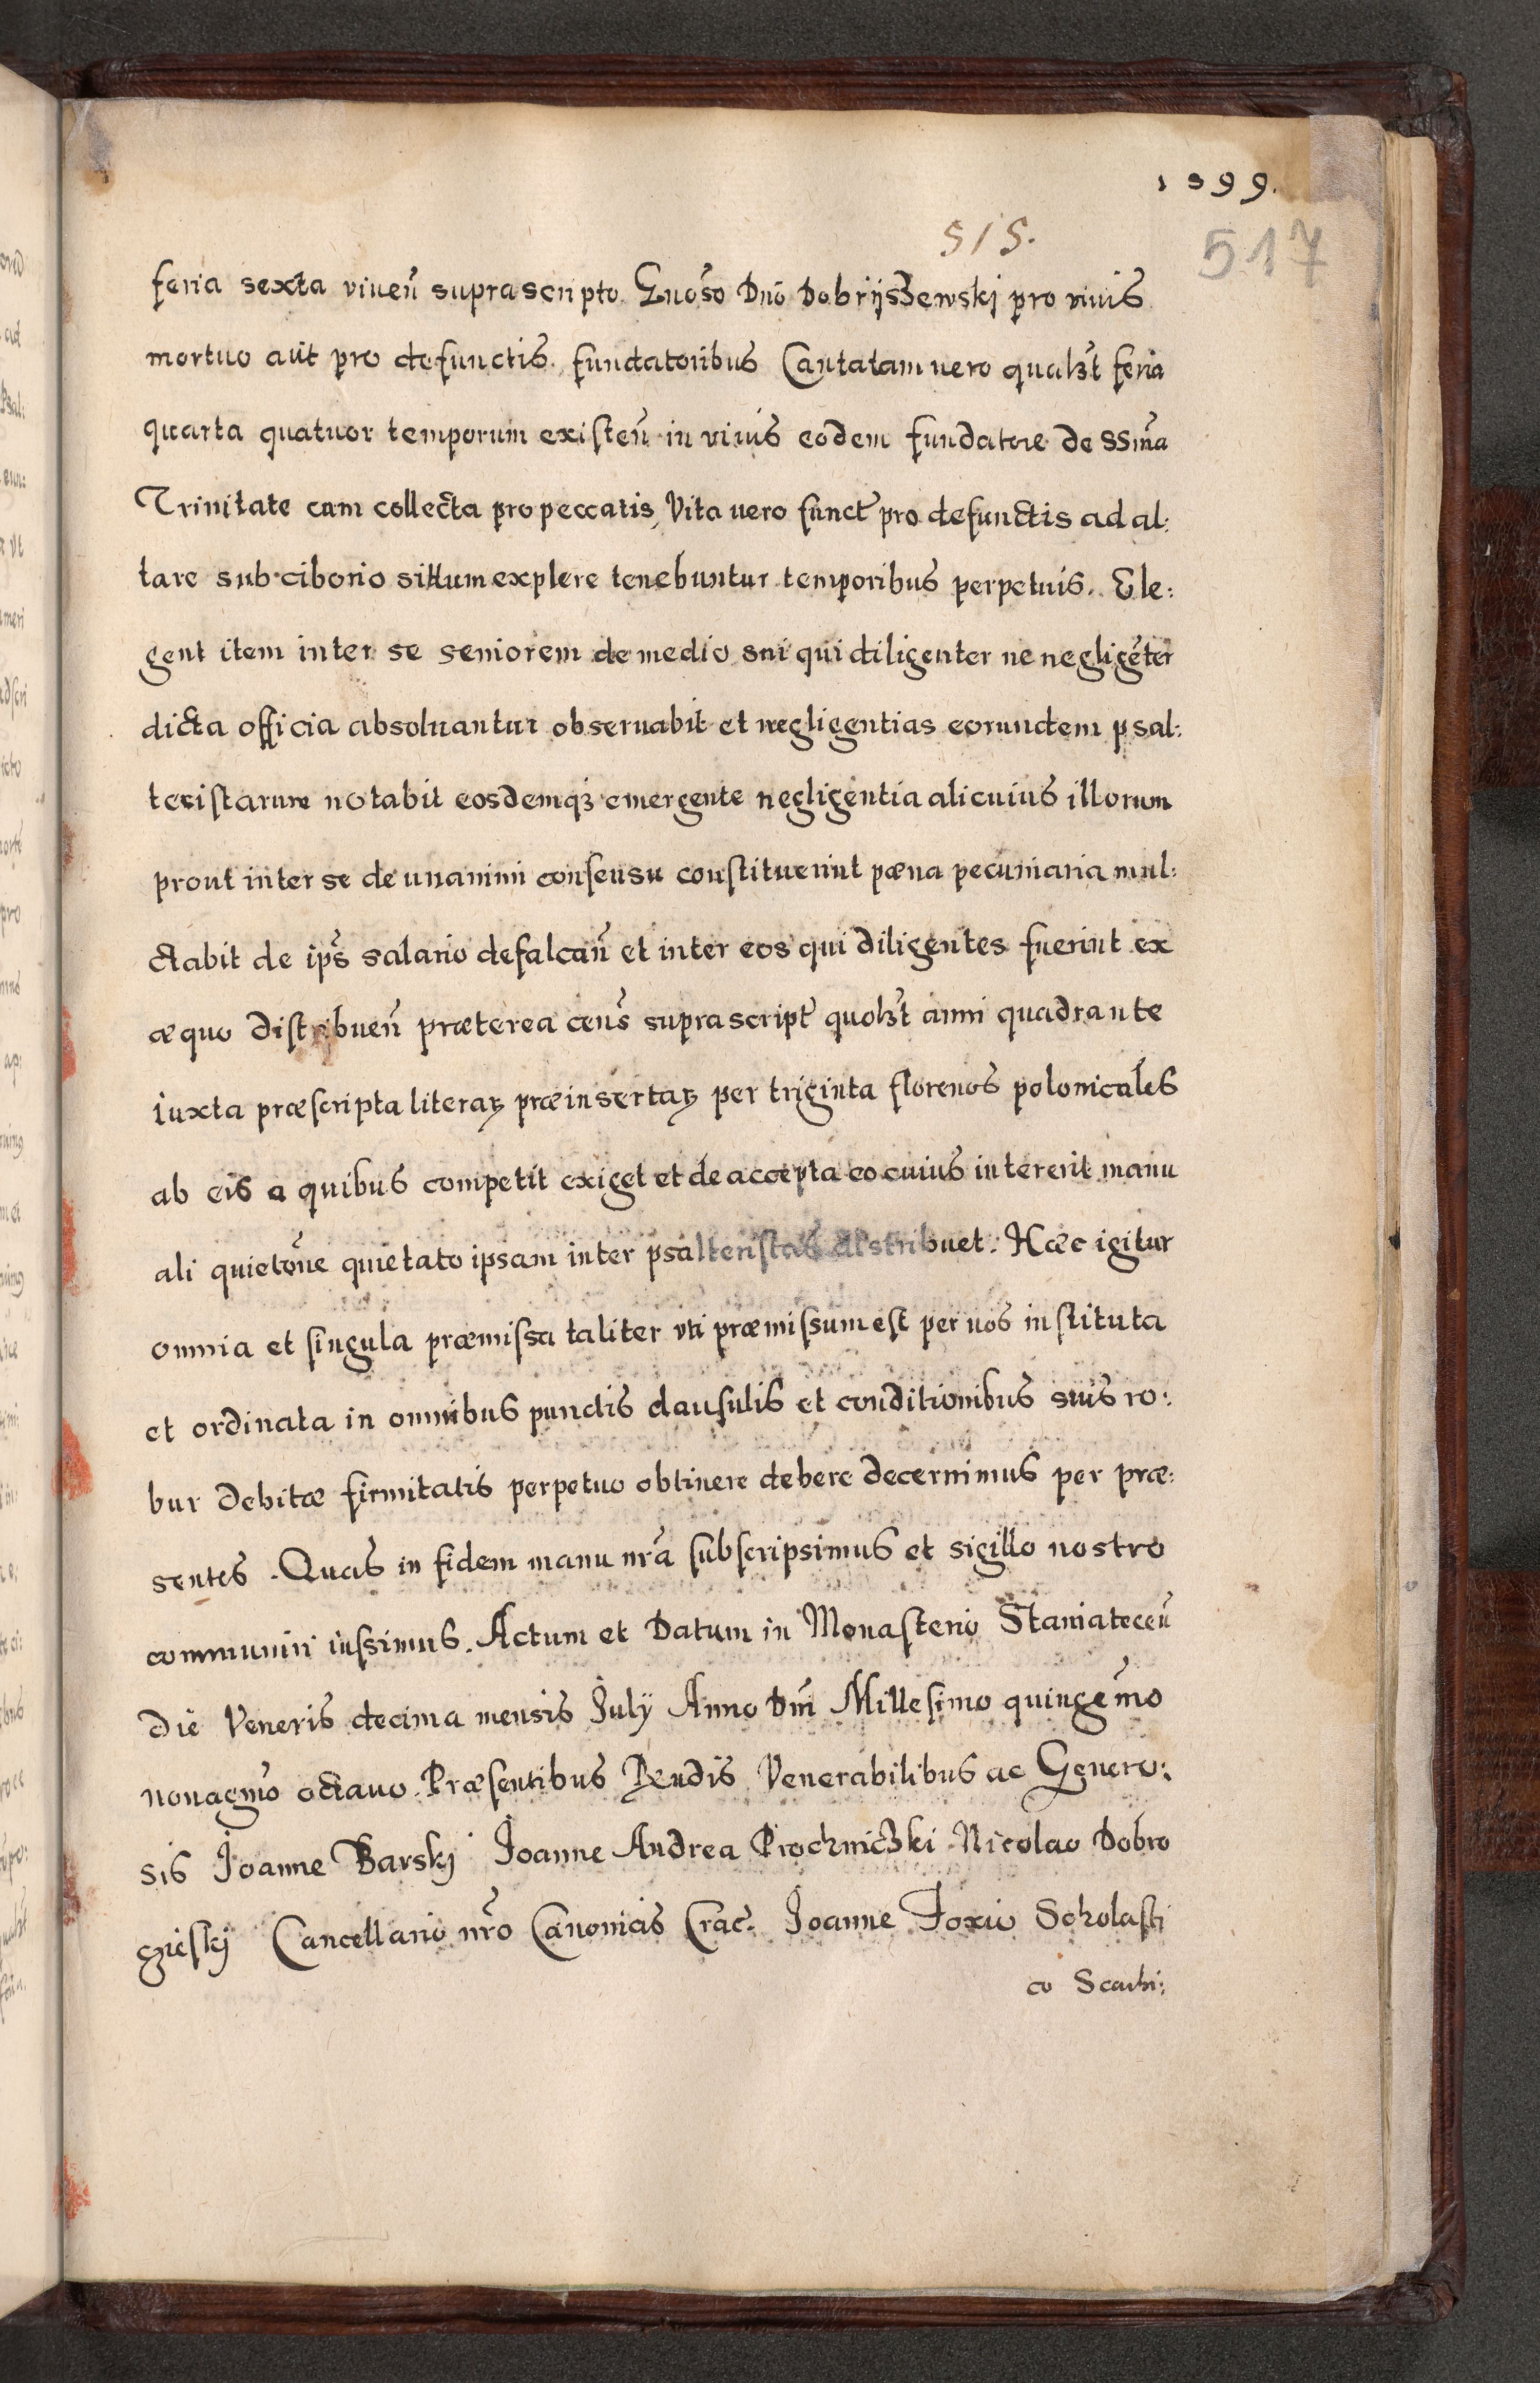 1599.
515.
517
feria sexta viueñ suprascripto Gnoso Dnō Dobrijszewskj pro viuis
mortuo aūt pro defunctis fundatoribus Cantatam vero qualzt feria
quarta quatuor temporum existeñ in viuis eodem fundatore de SSma
Trinitate cum collecta pro peccatis, Vita uero funct pro defunctis ad al:
tare sub ciborio situm explere tenebuntur temporibus perpetuis. Ele:
gent item inter se seniorem de medio sui qui diligenter ne negligēter
dicta officia absoluantur obseruabit et negligentias eorundem psal:
teristarum notabit eosdemqz emergente negligentia alicuius illorum
prout inter se de unanimi consensu constituerint pæna pecuniaria mul:
ctabit de ips̄ salario defalcañ et inter eos qui diligentes fuerint ex
æquo distribueñ præterea cens̄ suprascript quolzt anni quadrante
iuxta præscripta literaꝝ præinsertaꝝ per triginta florenos polonicales
ab eis a quibus competit exiget et de accepta eo cuius intererit manu
ali quietōne quietato ipsam inter psalteristas distribuet. Hæc igitur
omnia et singula præmissa taliter vti præmissum est per nos instituta
et ordinata in omnibus punctis clausulis et conditionibus suis ro:
bur debitæ firmitatis perpetuo obtinere debere decernimus per præ:
sentes. Quas in fidem manu nrā subscripsimus et sigillo nostro
communiri iussimus. Actum et Datum in Monasterio Staniateceñ
die Veneris decima mensis Julij Anno Dm̄ Millesimo quingem̄o
nonagmō octauo. Præsentibus Rendis Venerabilibus ac Genero:
sis Joanne Barskj Joanne Andrea Prochniczki Nicolao Dobro
cieskij Cancellario nrō Canonicis Crac. Joanne Foxio Scholasti
co Scarbi: